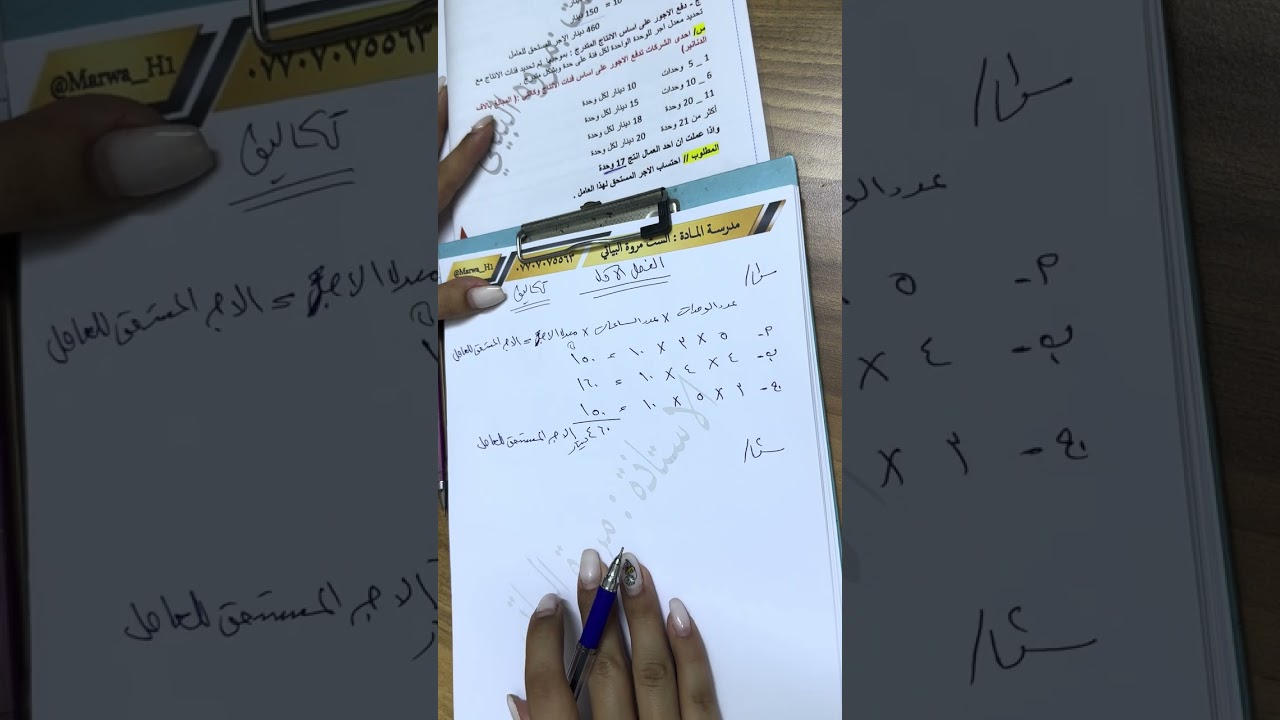 10 = 150 دينار
460 دينار الاجر المستحق للعامل
ج - دفع الاجور على اساس الانتاج المتدرج : بموجبها يتم تحديد فئات الانتاج مع
تحديد معدل اجر للوحدة الواحدة لكل فئة على حدة
س/ احدى الشركات تدفع الاجور على اساس فئات الانتاج وكالاتي : ( المبالغ بالاف
الدنانير )
1 _ 5 وحدات 10 دينار لكل وحدة
6 _ 10 وحدات 15 دينار لكل وحدة
11 _ 20 وحدة 18 دينار لكل وحدة
أكثر من 21 وحدة 20 دينار لكل وحدة
واذا عملت ان احد العمال انتج 17 وحدة
المطلوب // احتساب الاجر المستحق لهذا العامل .
مدرسة المادة : الست مروة البياتي
٠٧٧٠٧٠٧٥٥٦٣
@Marwa_H1
الفصل الاول
تكاليف
س١/
عدد الوحدات × عدد الساعات × معدل الاجر = الاجر المستحق للعامل
٢- ٥ × ٣ × ١٠ = ١٥٠
ب- ٤ × ٤ × ١٠ = ١٦٠
ج- ٣ × ٥ × ١٠ = ١٥٠
٤٦٠ دينار الاجر المستحق للعامل
س٢/
الاستاذة : مروة البياتي